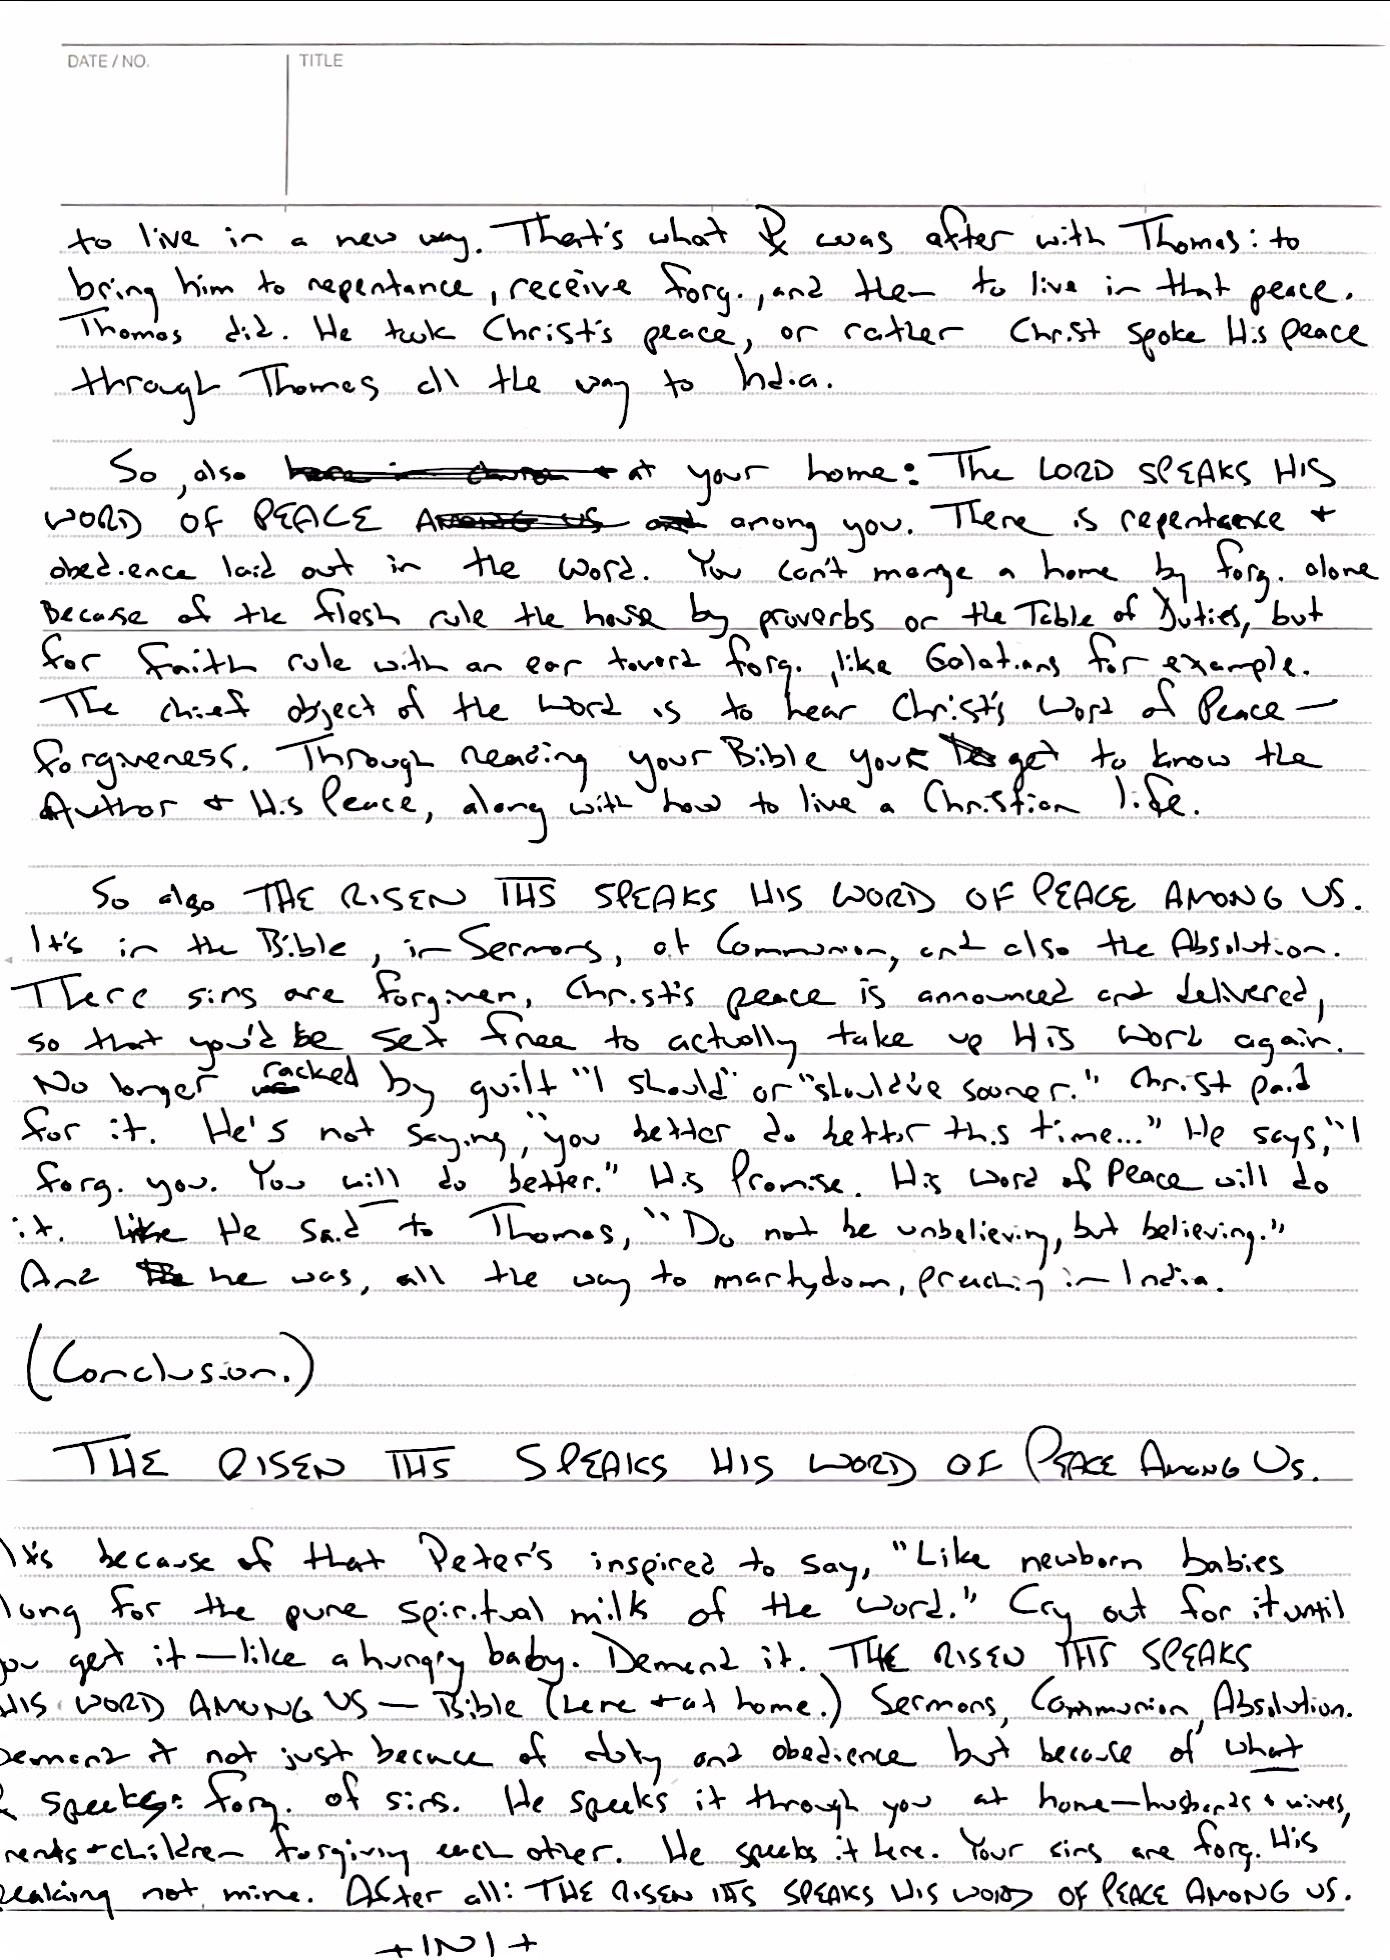 DATE / NO.
TITLE
to live in a new way. That's what ☧ was after with Thomas: to
bring him to repentance, receive forg., and then to live in that peace.
Thomas did. He took Christ's peace, or rather Christ spoke His peace
through Thomas all the way to India.
So, also at your home: The LORD SPEAKS HIS
WORD OF PEACE among you. There is repentance +
obedience laid out in the Word. You can't mange a home by forg. alone
Because of the flesh rule the house by proverbs or the Table of Duties, but
for faith rule with an ear toward forg., like Galatians for example.
The chief object of the Word is to hear Christ's Word of Peace—
forgiveness. Through reading your Bible you get to know the
Author + His Peace, along with how to live a Christian life.
So also THE RISEN IHS SPEAKS HIS WORD OF PEACE AMONG US.
It's in the Bible, in Sermons, at Communion, and also the Absolution.
There sins are forgiven, Christ's peace is announced and delivered,
so that you'd be set free to actually take up His Word again.
No longer racked by guilt "I should" or "should've sooner." Christ paid
for it. He's not saying, "you better do better this time..." He says, "I
forg. you. You will do better." His Promise. His Word of Peace will do
it. like He said to Thomas, "Do not be unbelieving, but believing."
And he was, all the way to martydom, preaching in India.
(Conclusion.)
THE RISEN IHS SPEAKS HIS WORD OF PEACE AMONG US.
It's because of that Peter's inspired to say, "Like newborn babies
long for the pure spiritual milk of the Word." Cry out for it until
you get it—like a hungry baby. Demand it. THE RISEN IHS SPEAKS
HIS WORD AMONG US — Bible (here + at home.) Sermons, Communion, Absolution.
Demand it not just because of duty and obedience but because of what
speaks: forg. of sins. He speaks it through you at home—husbands + wives,
rents + children forgiving each other. He speaks it here. Your sins are forg. His
eaking not mine. After all: THE RISEN IHS SPEAKS HIS WORD OF PEACE AMONG US.
+INI+